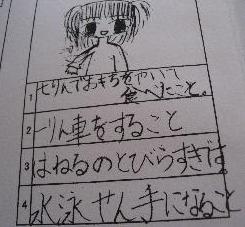 1 七りんでおもちをやいて
食べたこと。
2 一りん車をすること
3 はねるのとびらすぎです。
4 水泳せん手になること